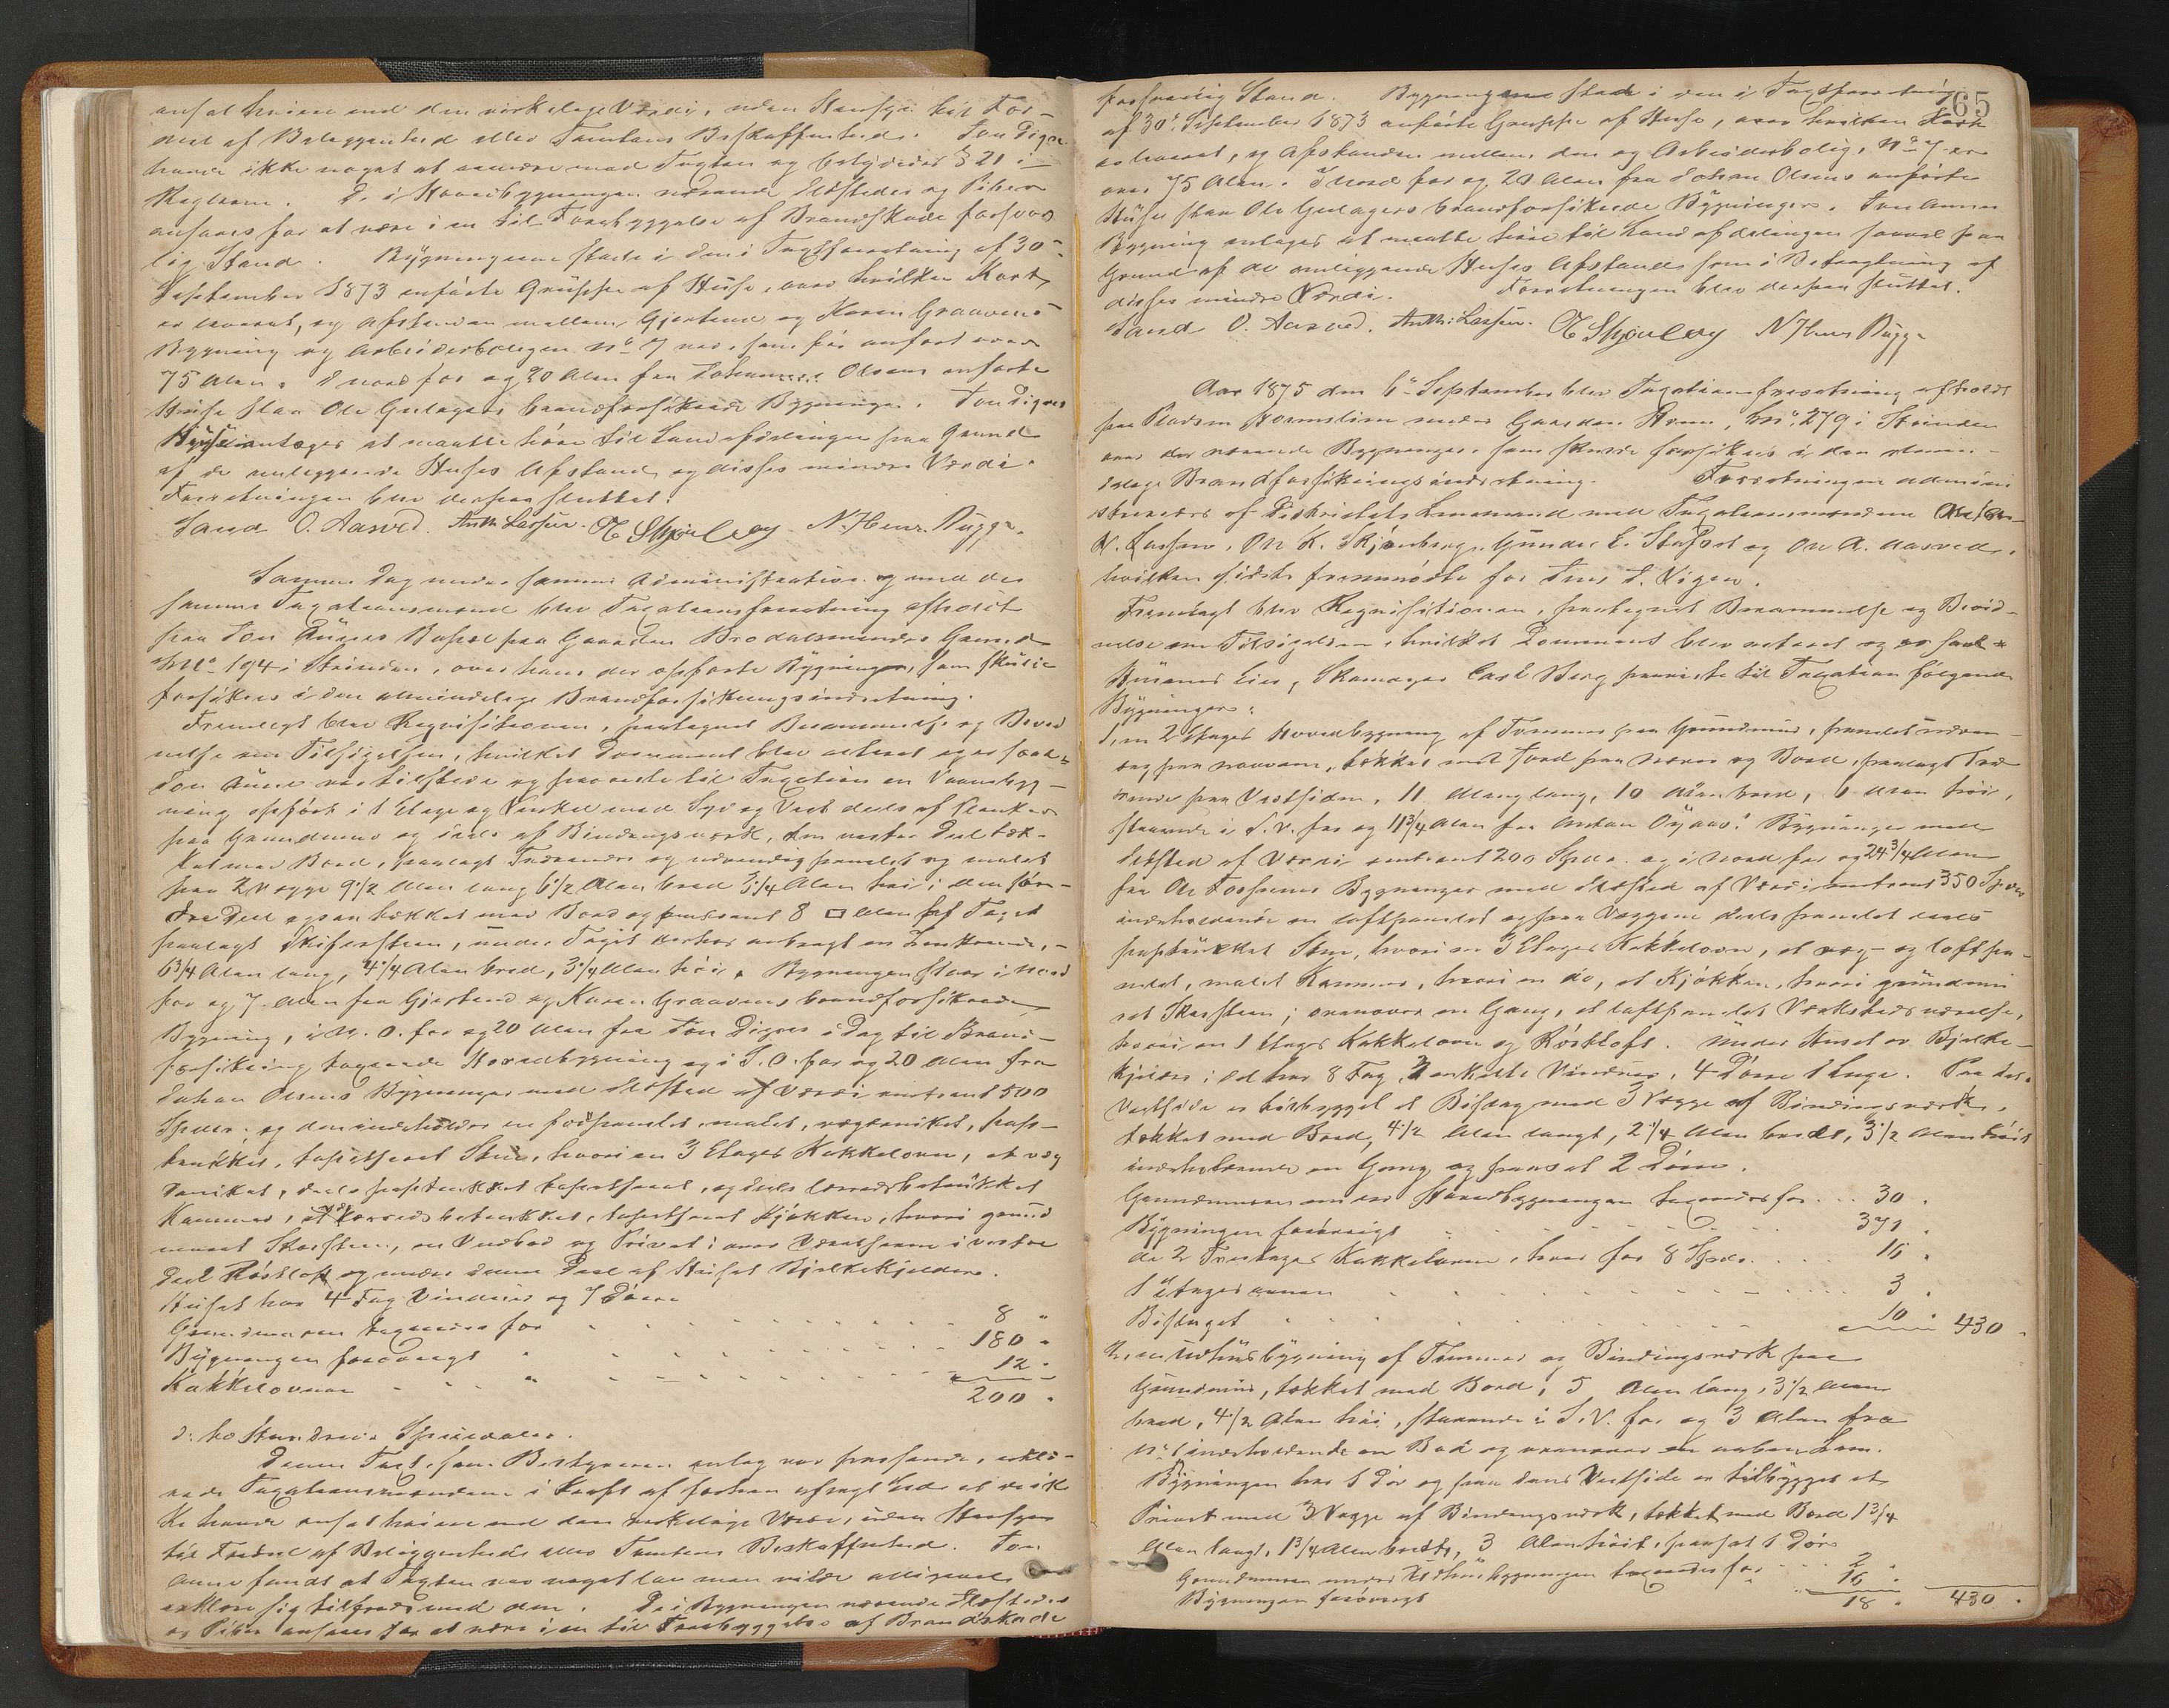 ansat høiere end den virkelige Værdi, uden Hensyn til For-
deel af Beliggenhed eller Tomtens Beskaffenhed. Jon Digre
havde ikke noget at erindre mod Taxten og betydedes § 21 i
Reglerne. De i Hovedbygningen værende Ildsteder og Piber
ansaaes for at være i en til Forebyggelse af Brandskade forsvar-
lig Stand. Bygningerne staar i den i Taxtforretning af 30-
September 1873 anførte Gruppe af Huse, over hvilken Kart
er leveret, og Afstanden mellem Gjertine og Karen Graavens
Bygning og Arbeiderboligen No 7 er, som før anført over
75 Alen. I nord for og 20 Alen fra Johannes Olsens anførte
Huse staar Ole Gulagers brandforsikrede Bygninger. Jon Digres
Huse antages at maatte høre til Landafdelingen paa Grund
af de omliggende Huses Afstand og disses mindre Værdi.
Forretningen blev derpaa sluttet.
Sand O. Aasved. Anth: Lassen. O K Skjenberg N. Hens. Bugge.
Samme Dag under samme Administration og med de
samme Taxationsmænd blev Taxationsforretning afholdt
paa Jon Aunes Bopæl paa Gaarden Brodals Grund
M No 194 i Strinden, over hans der opførte Bygninger, som skulde
forsikres i den almindelige Brandforsikringsindretning.
Fremlagt blev Reqvisitionen, paategnet Berammelse og Bevid-
nelse om Tilsigelsen, hvilket Document blev
Jon Aune var tilstede og paaviste til Taxation en Vaanebyg-
ning opført i 1 Etage og Vinkel med Syd og Vest deels af Planker
paa Grundmur og deels af Bindingsværk, den vestre Deel tæk-
ket med Bord, paalagt Tagrender og udvendig panelet og malet
paa 2 Vægge 9 1/2 Alen lang 6 1/2 Alen bred 3 1/4 Alen høi; den søn-
dre Deel ogsaa tækket med Bord og omtrent 8 □ Alen af Taget
paalagt Skifersteen, under Taget derhos anbragt en
6 3/4 Alen lang, 4 1/4 Alen bred, 3 1/4 Alen høi. Bygningen staar i Nord
for og 7 Alen fra Gjertine og Karen Graavens brandforsikrede
Bygning, i N. O. for og 20 Alen fra Jon Digres i Dag til Brand-
forsikring taxerede Hovedbygning og i S. O. for og 20 Alen fra
Johan Olsens Bygninger med Ildsted af Værdi omtrent 500
Spdlr; og den indeholder en malet,
tapetseret Stue, hvori en 3 Etages Kakkelovn, et væg
tapetseret, og deels lærredsbetrukket
Kammer, et lærredsbetrukket, tapetseret Kjøkken, hvori grund-
muret Skorsteen, en Vedbod og Privet; over Værelserne i vestre
Deel Røstloft og under denne Deel af Huset Bjelkekjelder.
Huset har 4 Fag Vinduer og 7 Døre
Grundmuren taxeredes for 8 "
Bygningen forøvrigt " 180 "
Kakkelovnen " 12 "
200 "
d: to Hundrede Speciedaler.
Denne Taxt, som Bestyreren antog var passende, erklæ-
rede Taxationsmændene i Kraft af forhen aflagt Eed at de ik-
ke havde ansat høiere end den virkelige Værdi, uden Hensyn
til Fordeel af Beliggenhed eller Tomtens Beskaffenhed. Jon
Aune fandt at Taxten var noget lav men vilde alligevel
erklære sig tilfreds med den. De i Bygningen værende Ildsteder
og Piber ansaaes for at være i en til Forebyggelse af Brandskade
65
forsvarlig Stand. Bygningerne staar i den i Taxtforretning
af 30' September 1873 anførte Gruppe af Huse, over hvilken Kart
er leveret, og Afstanden mellem den og Arbeiderbolig No 7 er
over 75 Alen. I Nord for og 20 Alen fra Johan Olsens anførte
Huse staar Ole Gulagers brandforsikrede Bygninger. Jon Aunes
Bygning antages at maatte høre til Landafdelingen saavel paa
Grund af de omliggende Huses Afstand som i Betragtning af
disses mindre Værdi. Forretningen blev derpaa sluttet.
Sand O. Aasved. Anth: Lassen. O K Skjenberg N Hens Bugge
Aar 1875 den 6' September blev Taxationsforretning afholdt
paa Pladsen under Gaarden M No 279 i Strinden
over der værende Bygninger, som skulde forsikres i den almin-
delige Brandforsikringsindretning. Forretningen admini-
streredes af Districtets Lensmand med Taxationsmændene
N. Lassen, Ole K. Skjenberg, Gunder E. Stafset og Ole A. Aasved,
hvilken sidste fremmødte for Jens J. Vigen.
Fremlagt blev Reqvisitionen, paategnet Berammelse og Bevid-
nelse om Tilsigelsen, hvilket Document blev
Husenes Eier, Skomager Carl Berg paaviste til Taxation følgende
Bygninger:
1, en 2 Etages Hovedbygning af Tømmer paa Grundmur, panelet udven-
dig paa tækket med Jord paa Næver og Bord, paalagt Tag-
rende paa Vestsiden, 11 Alen lang, 10 Alen bred, 6 Alen høi,
staaende i S. V. for og 11 3/4 Alen fra Anton Øyaas' Bygninger med
Ildsted af Værdi omtrent 200 Spdlr. og i Nord for og 24 3/4 Alen
fra Ole Forseens Bygninger med Ildsted af Værdi omtrent 350 Spdlr
indeholdende en loftpanelet og paa Væggene deels panelet deels
papbetrukket Stue, hvori en 3 Etages Kakkelovn, et væg- og loftpa-
nelet, malet Kammer, hvori en do, et Kjøkken, hvori grundmu-
ret Skorsteen; ovenover en Gang, et loftpanelet Værkstedsværelse,
hvori en 1 Etages Kakkelovn og Røstloft. Under Huset er Bjelke-
kjelder; det har 8 Fag, 2 enkelte Vinduer, 4 Døre 1 Luge. Paa dets
Vestside er tilbygget et Bislag med 3 Vægge af Bindingsværk,
tækket med Bord, 4 1/2 Alen langt, 2 1/4 Alen bredt, 3 1/2 Alen høit
indeholdende en Gang og forsat 2 Døre.
Grundmuren under Hovedbygningen taxeredes for ... 30 "
Bygningen forøvrigt 371 "
de 2 Treetages Kakkelovne, hver for 8 Spdlr. 16 "
1 Etages ovnen 3 "
Bislaget 10 " 430 "
2, en Udhuusbygning af Tømmer og Bindingsværk paa
Grundmur, tækket med Bord, 5 Alen lang, 3 1/2 Alen
bred, 4 1/2 Alen høi, staaende i S. V. for og 3 Alen fra
No 1 indeholdende en Bod og ovenover en aaben Lem.
Bygningen har 1 Dør og paa dens Vestside er tilbygget et
Privet med 3 Vægge af Bindingsværk, tækket med Bord 1 3/4
Alen langt, 1 3/4 Alen bredt, 3 Alen høit, forsat 1 Dør
Grundmuren under Udhuusbygningen taxeredes for 2 "
Bygningen forøvrigt 16 "
18 " 430 "